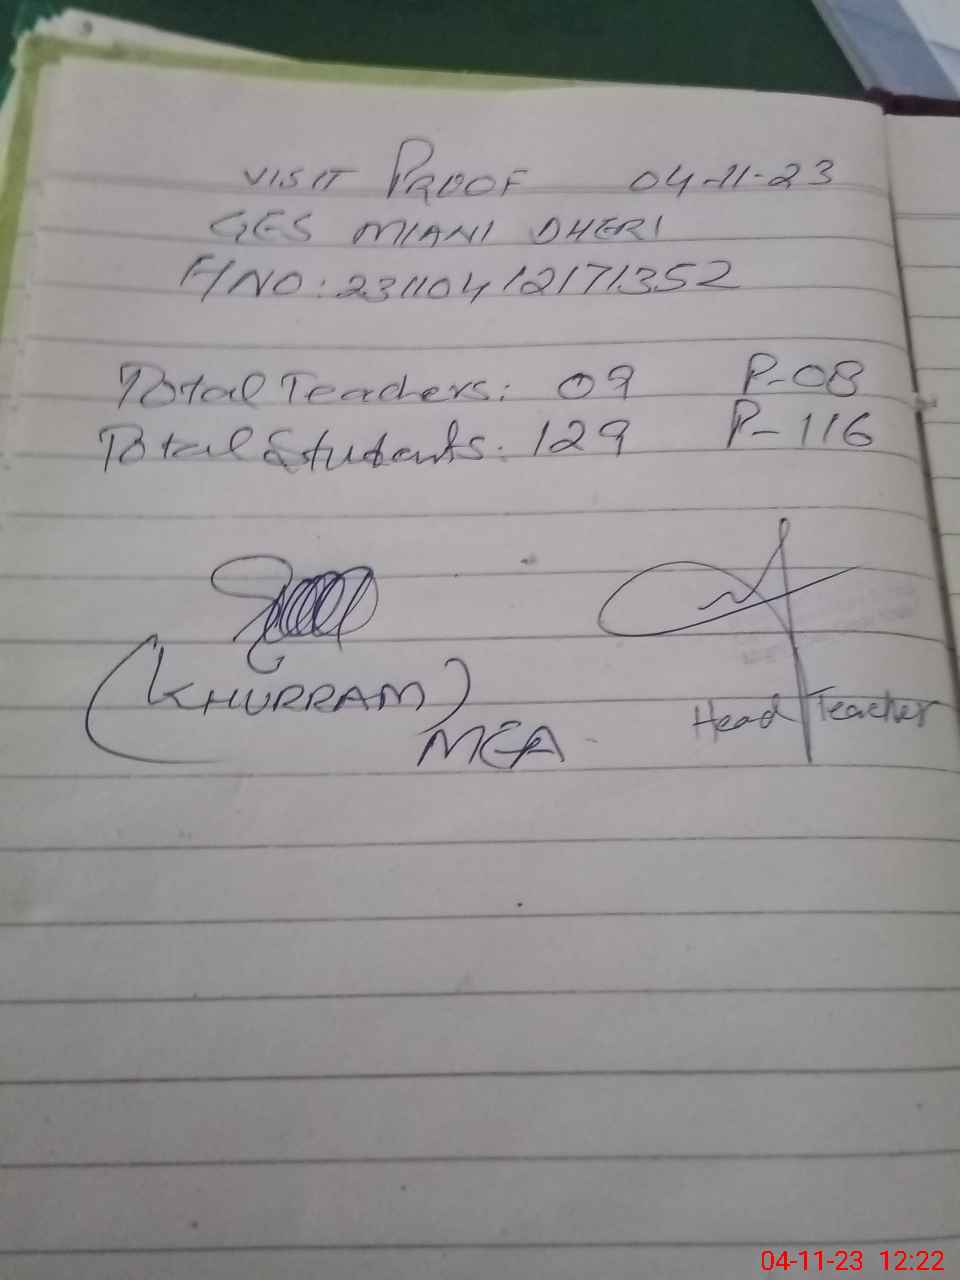 VISIT PROOF 04-11-23
GES MIANI DHERI
F/NO: 23110412171352
Total Teachers: 09 P-08
Total Students: 129 P-116
(KHURRAM)
MEA
Head Teacher
04-11-23 12:22